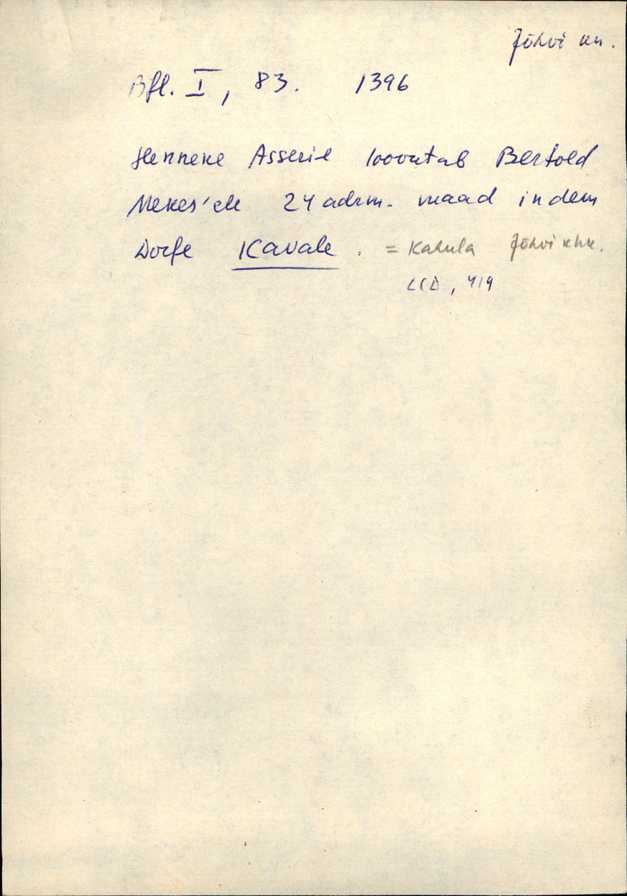 Jõhvi khk.
Bfl. I, 83. 1396
Henneke Asserie loovutab Bertold
Mekes'ele 24 adrm. maad in dem
Dorfe Kavale. = Kahula Jõhvi khk.
LCD, 419